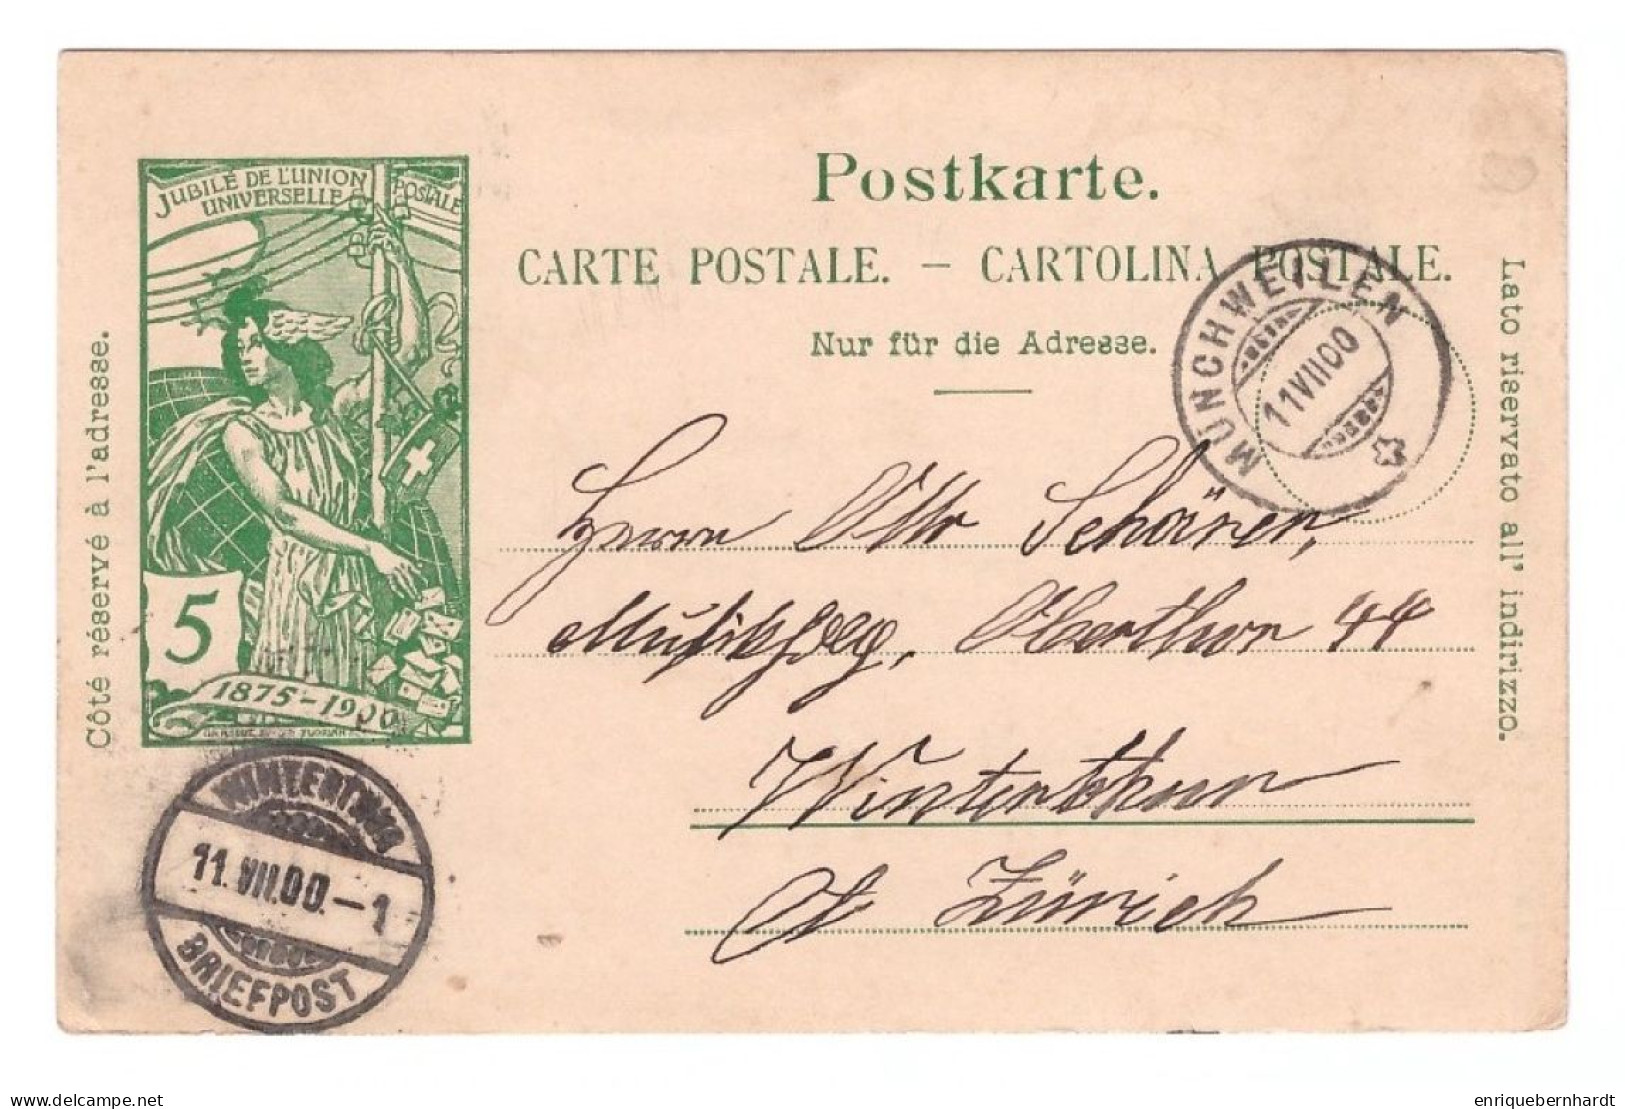 JUBILÉ DE L'UNION
POSTALE
UNIVERSELLE
5
1875-1900
Côté réservé à l'adresse.
Postkarte.
CARTE POSTALE. — CARTOLINA POSTALE.
Nur für die Adresse.
Lato riservato all' indirizzo.
MÜNCHWEILEN
11 VII 00
Herrn Otto Schärer,
Oberthor 44
Winterthur
Ct Zürich
WINTERTHUR
11. VII. 00. – 1
BRIEFPOST
enriquebernhardt